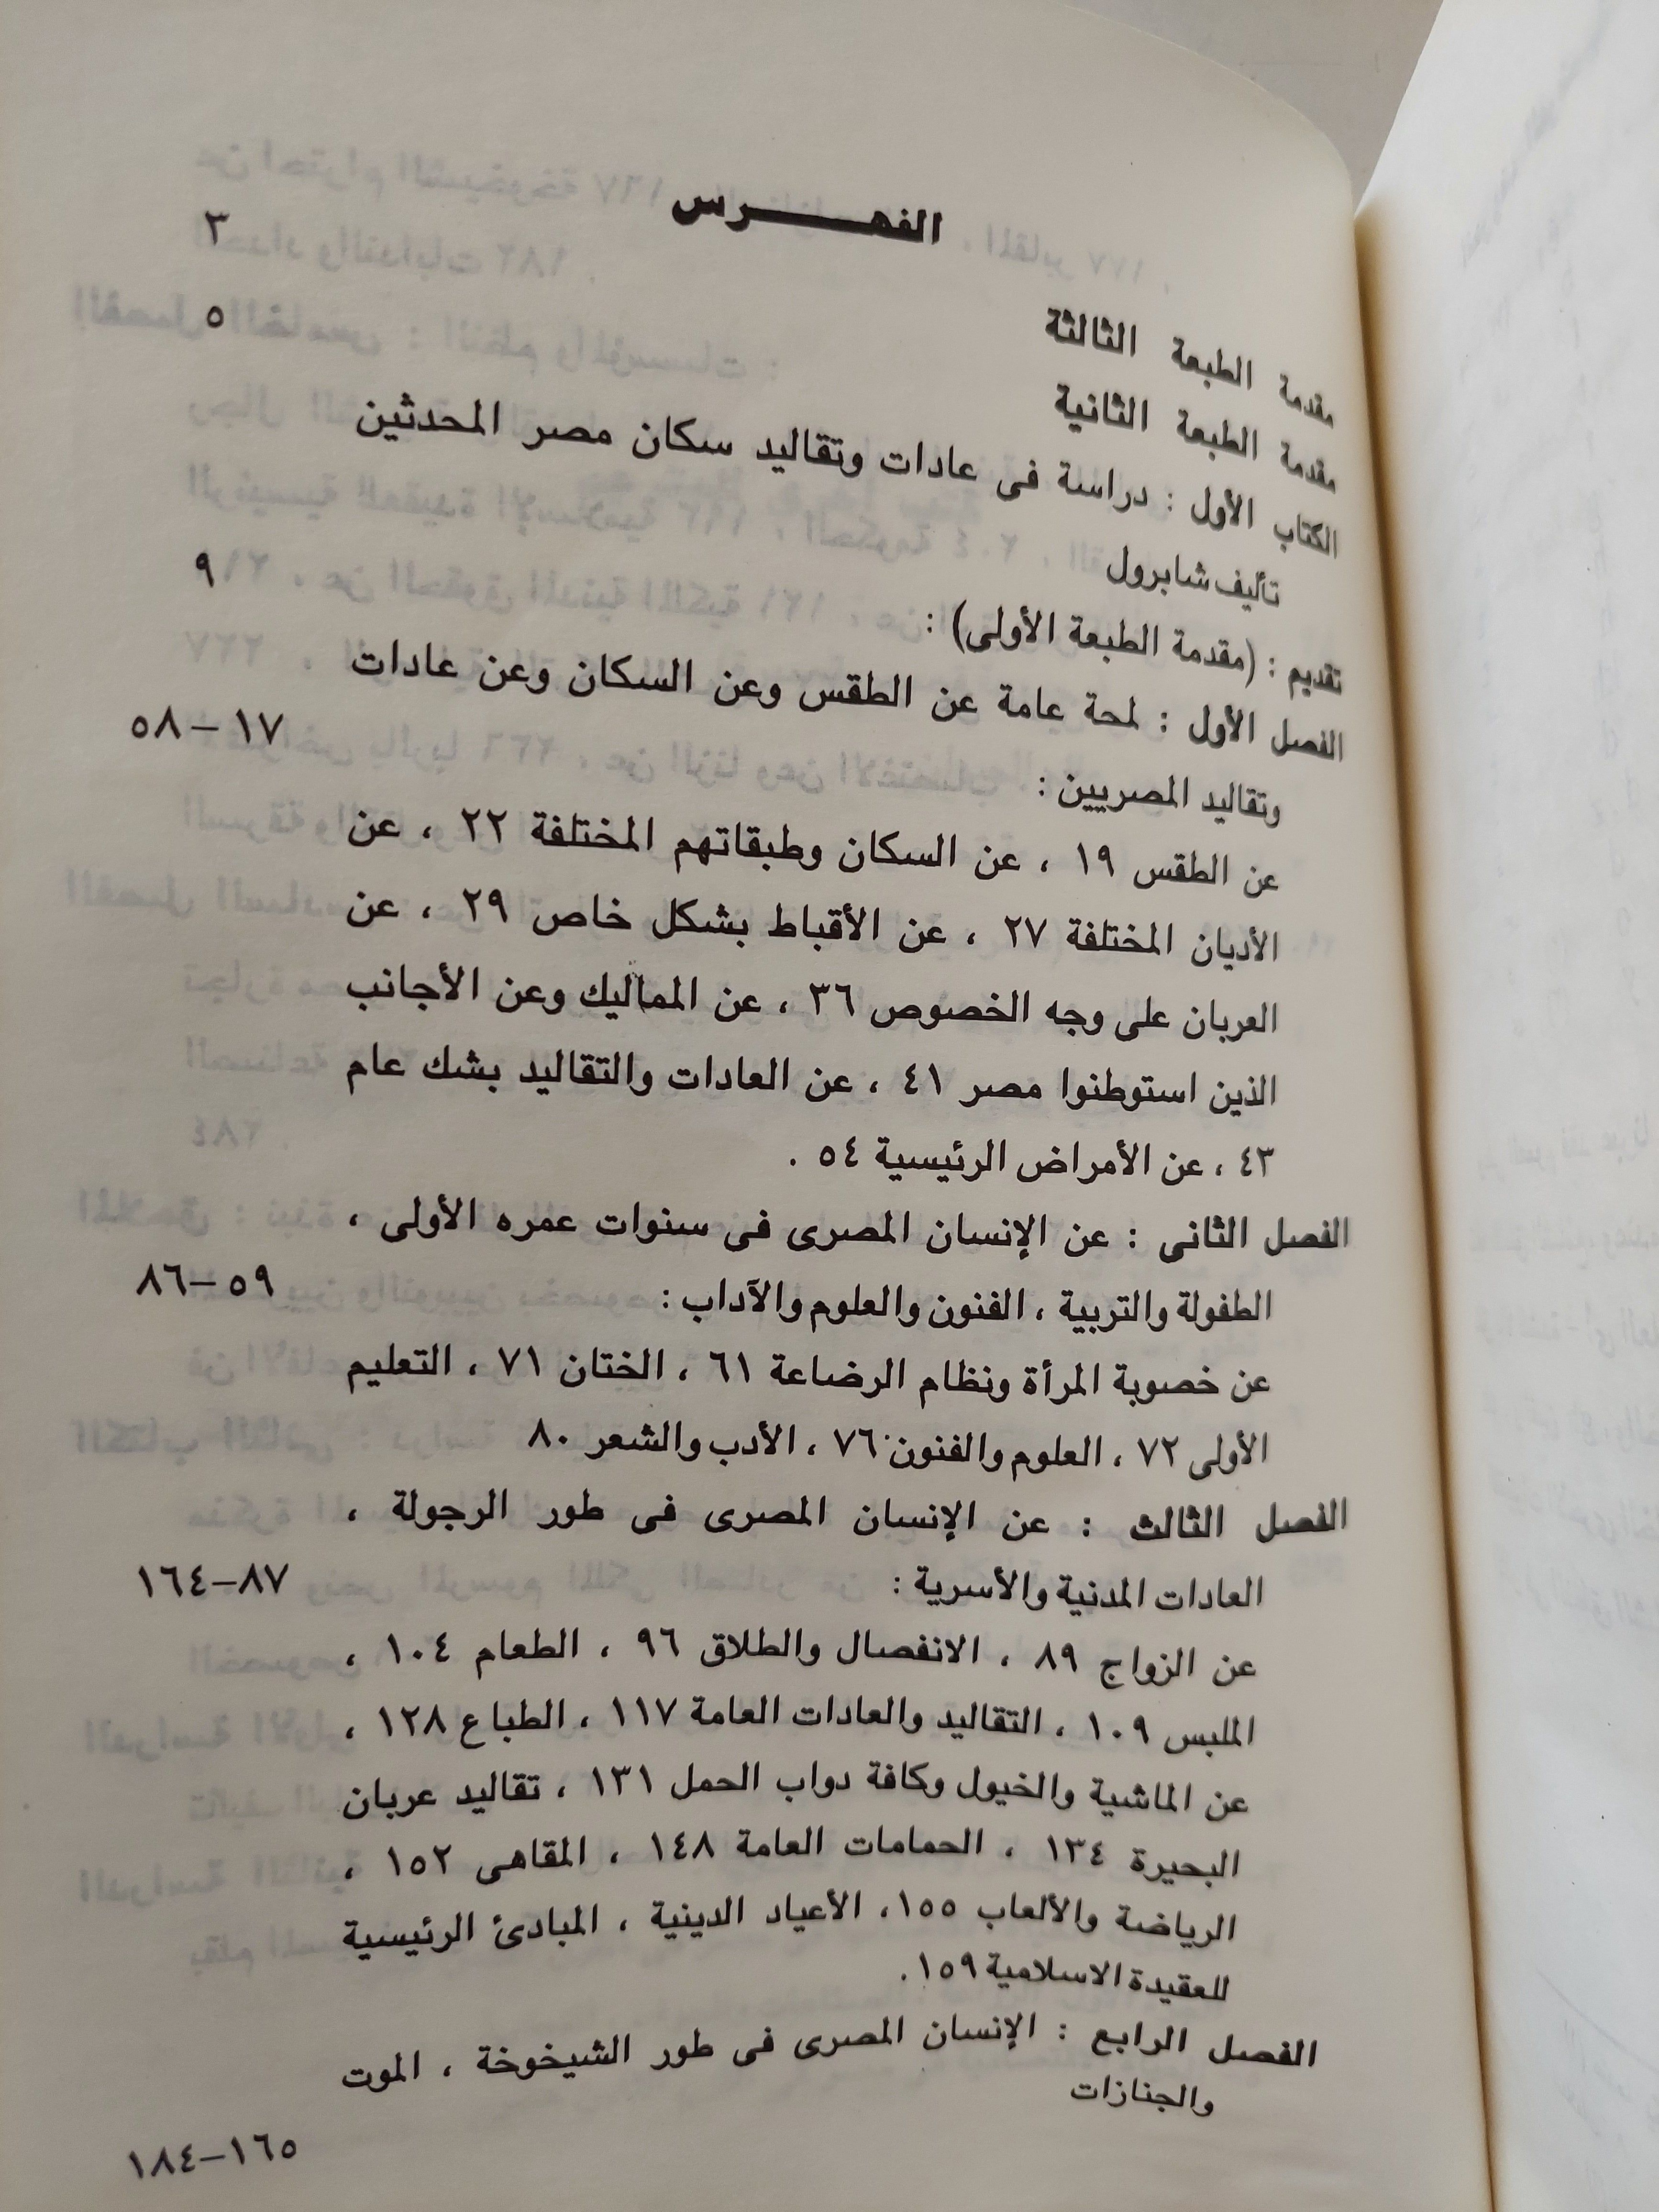 الفهرس
مقدمة الطبعة الثالثة ٣
مقدمة الطبعة الثانية ٥
الكتاب الأول : دراسة فى عادات وتقاليد سكان مصر المحدثين
تأليف شابرول
تقديم : (مقدمة الطبعة الأولى) : ٩
الفصل الأول : لمحة عامة عن الطقس وعن السكان وعن عادات
وتقاليد المصريين : ١٧–٥٨
عن الطقس ١٩ ، عن السكان وطبقاتهم المختلفة ٢٢ ، عن
الأديان المختلفة ٢٧ ، عن الأقباط بشكل خاص ٢٩ ، عن
العربان على وجه الخصوص ٣٦ ، عن المماليك وعن الأجانب
الذين استوطنوا مصر ٤١ ، عن العادات والتقاليد بشك عام
٤٣ ، عن الأمراض الرئيسية ٥٤ .
الفصل الثانى : عن الإنسان المصرى فى سنوات عمره الأولى ،
الطفولة والتربية ، الفنون والعلوم والآداب : ٥٩–٨٦
عن خصوبة المرأة ونظام الرضاعة ٦١ ، الختان ٧١ ، التعليم
الأولى ٧٢ ، العلوم والفنون ٧٦ ، الأدب والشعر ٨٠
الفصل الثالث : عن الإنسان المصرى فى طور الرجولة ،
العادات المدنية والأسرية : ٨٧–١٦٤
عن الزواج ٨٩ ، الانفصال والطلاق ٩٦ ، الطعام ١٠٤ ،
الملبس ١٠٩ ، التقاليد والعادات العامة ١١٧ ، الطباع ١٢٨ ،
عن الماشية والخيول وكافة دواب الحمل ١٣١ ، تقاليد عربان
البحيرة ١٣٤ ، الحمامات العامة ١٤٨ ، المقاهى ١٥٢ ،
الرياضة والألعاب ١٥٥، الأعياد الدينية ، المبادئ الرئيسية
للعقيدة الاسلامية ١٥٩.
الفصل الرابع : الإنسان المصرى فى طور الشيخوخة ، الموت
والجنازات ١٦٥–١٨٤